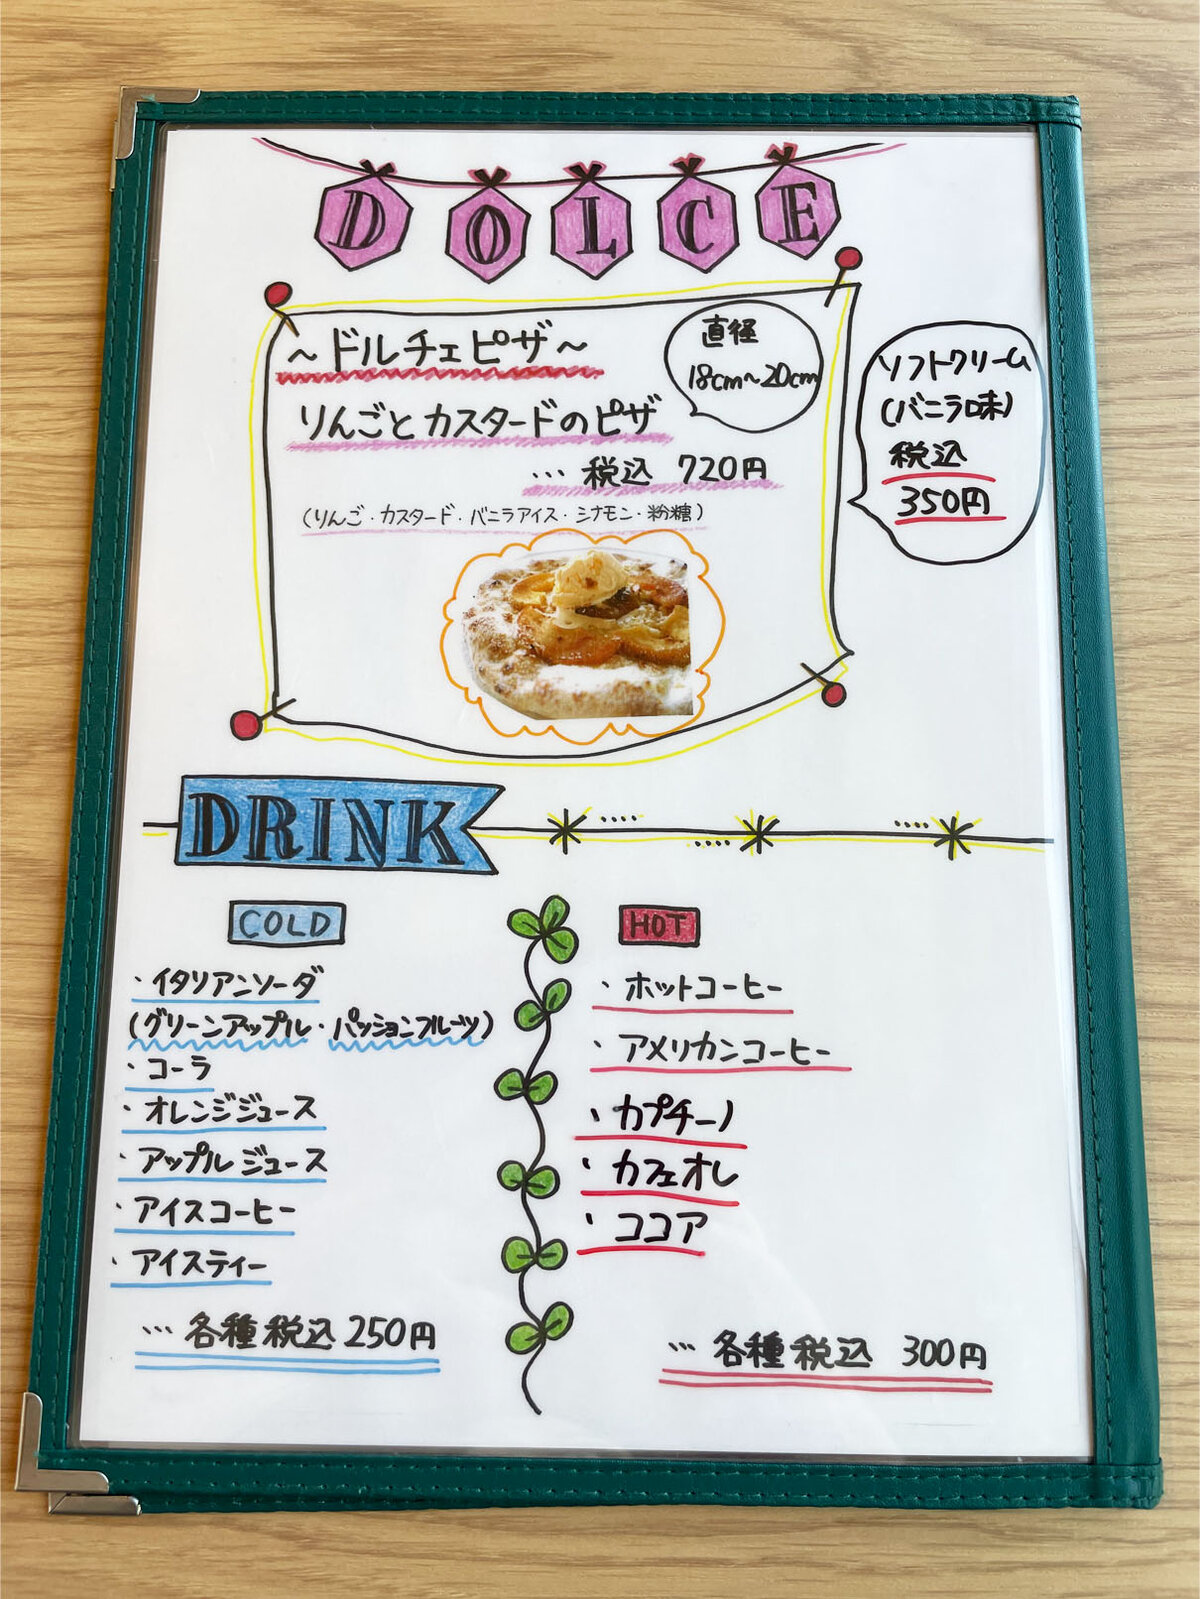 DOLCE
～ドルチェピザ～
直径
18cm～20cm
りんごとカスタードのピザ
… 税込 720円
(りんご・カスタード・バニラアイス・シナモン・粉糖)
ソフトクリーム
(バニラ味)
税込
350円
DRINK
COLD
・イタリアンソーダ
(グリーンアップル・パッションフルーツ)
・コーラ
・オレンジジュース
・アップルジュース
・アイスコーヒー
・アイスティー
… 各種税込 250円
HOT
・ホットコーヒー
・アメリカンコーヒー
・カプチーノ
・カフェオレ
・ココア
… 各種税込 300円